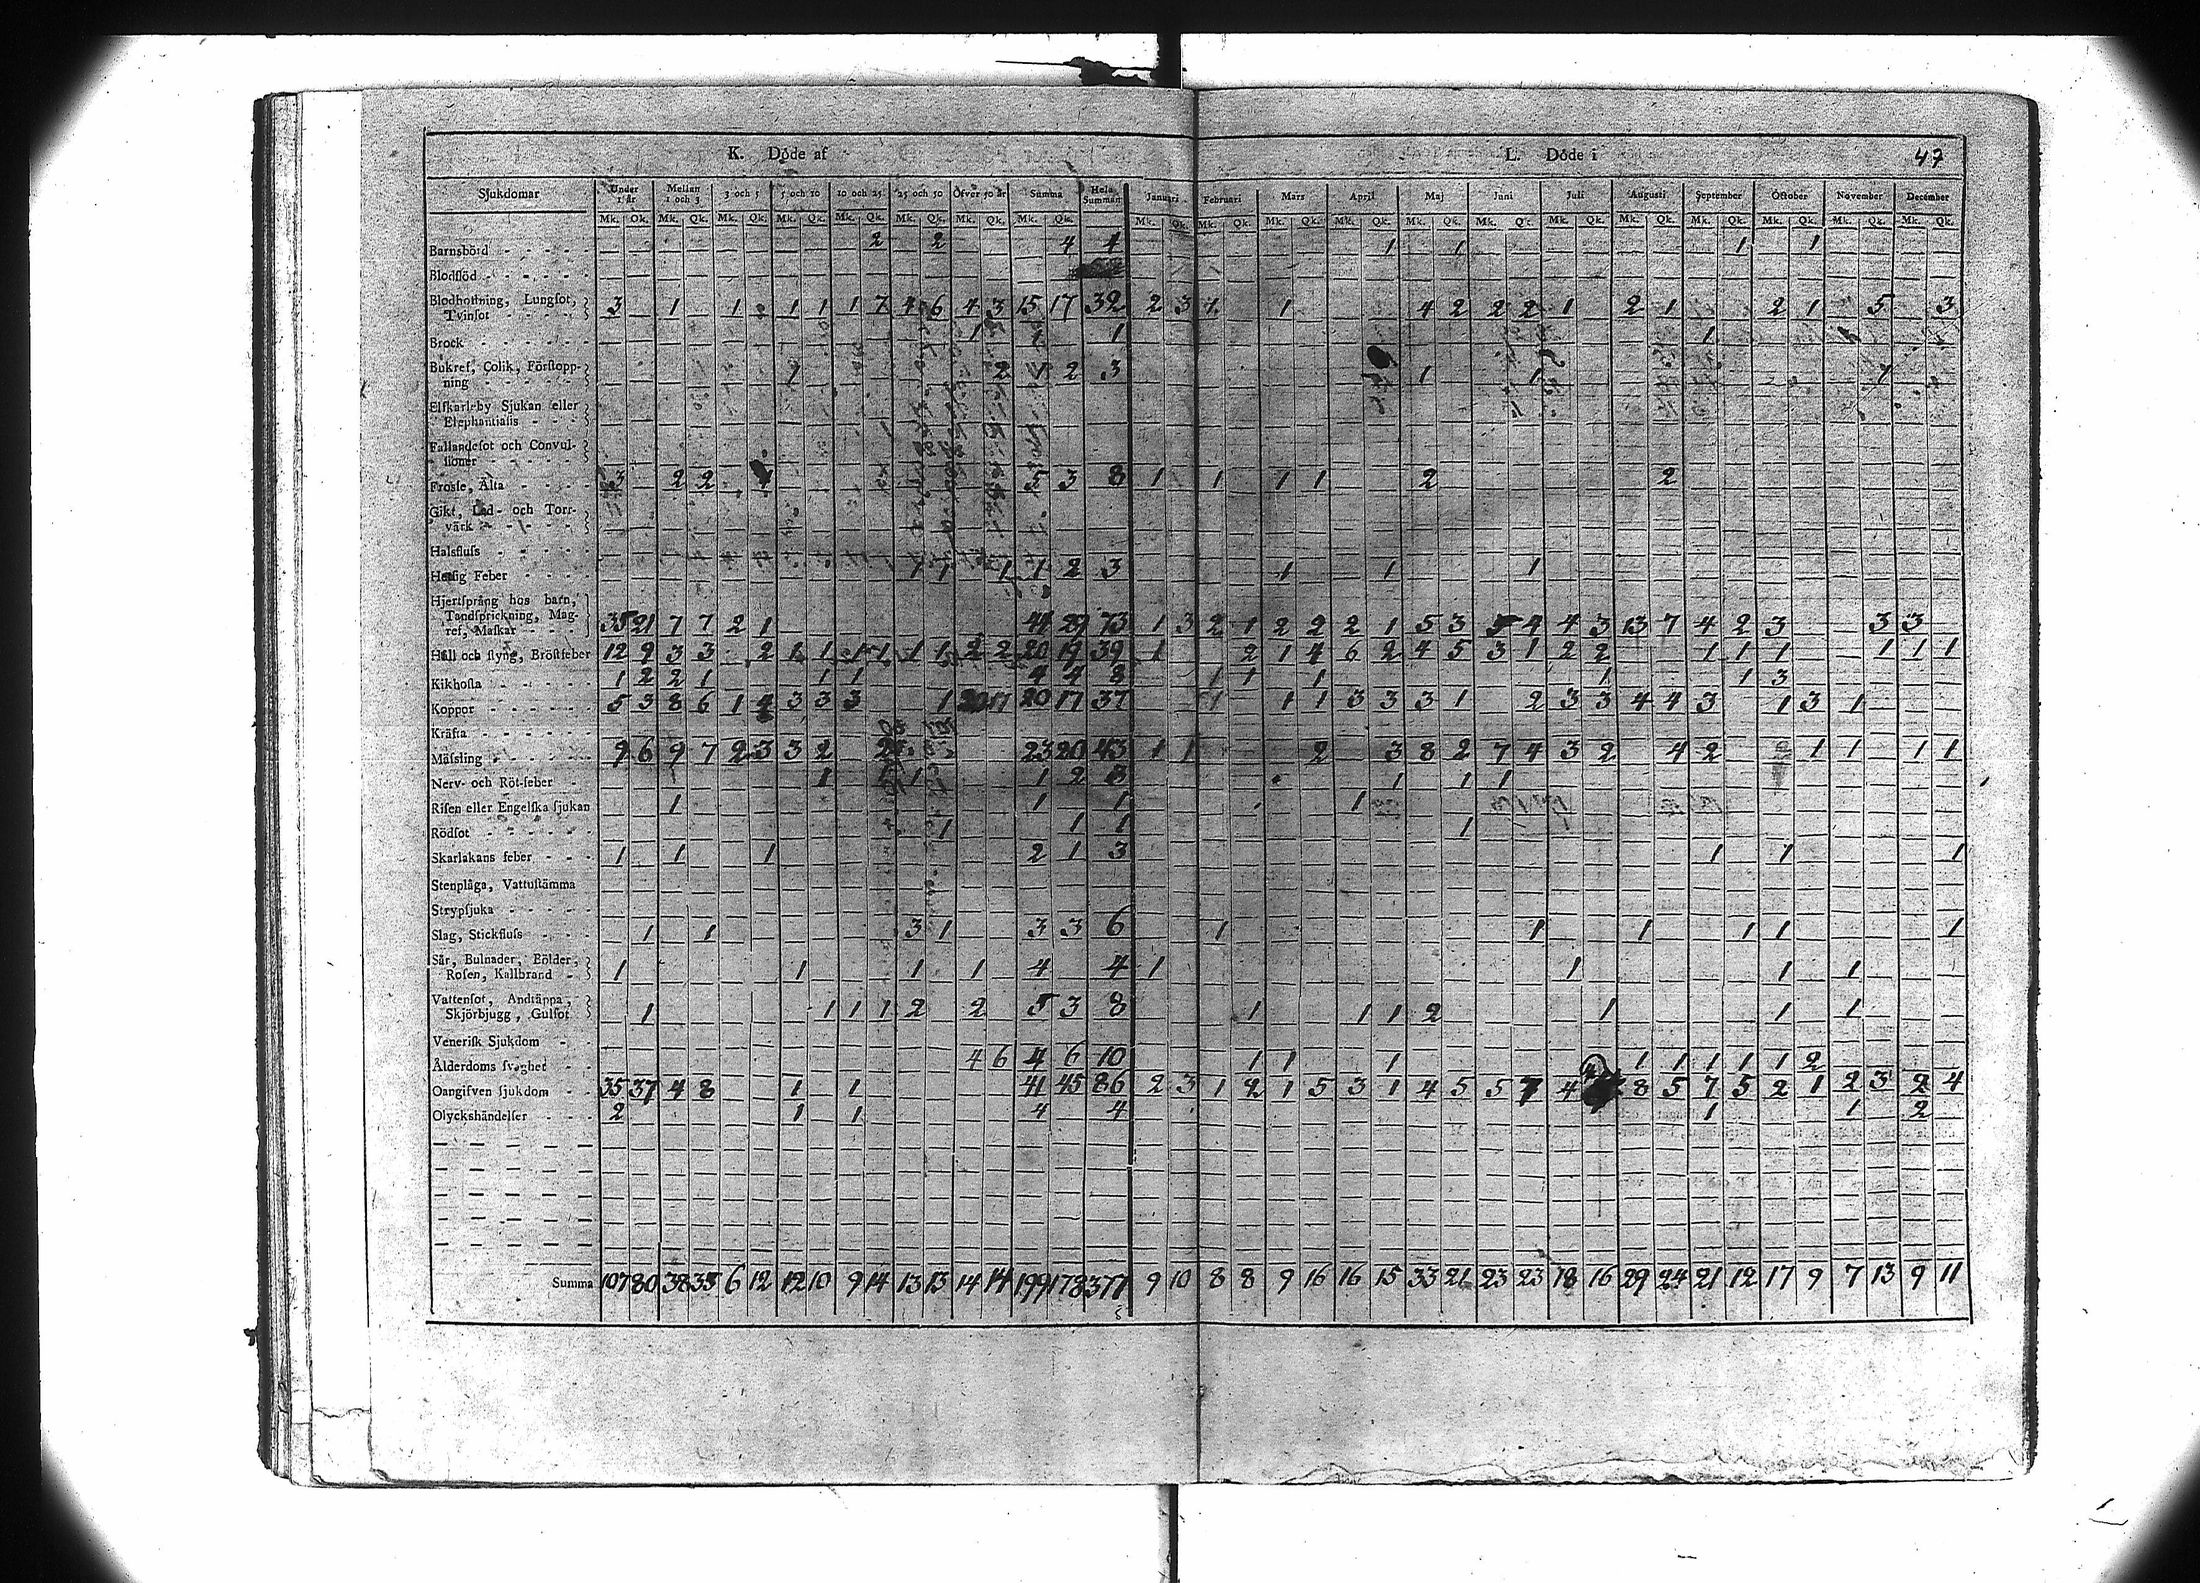 K. Döde af
L. Döde i
47
Sjukdomar Under 1 år Mellan 1 och 3 3 och 5 5 och 10 10 och 25 25 och 50 Öfver 50 år Summa Hela Summan Januari Februari Mars April Maj Juni Juli Augusti September October November December
Mk. Qk. Mk. Qk. Mk. Qk. Mk. Qk. Mk. Qk. Mk. Qk. Mk. Qk. Mk. Qk. Mk. Qk. Mk. Qk. Mk. Qk. Mk. Qk. Mk. Qk. Mk. Qk. Mk. Qk. Mk. Qk. Mk. Qk. Mk. Qk. Mk. Qk. Mk. Qk.
Barnsbörd 2 2 4 4 1 1 1 1
Blodſlöd
Blodhoſtning, Lungſot,
Tvinſot 3 1 1 1 1 1 7 4 6 4 3 15 17 32 2 3 1 1 4 2 2 2 1 2 1 2 1 5 3
Brock 1 1 1
Bukref, Colik, Förſtopp-
ning 1 2 1 2 3 1 1 1
Elſkarleby Sjukan eller
Elephantiaſis
Fallandeſot och Convul-
ſioner
Froſſe, Älta 3 2 2 1 5 3 8 1 1 1 1 2 2
Gikt, Led- och Torr-
värk
Halsfluſs
Hetſig Feber 1 1 1 1 2 3 1 1 1
Hjertſprång hos barn,
Tandſprickning, Mag-
ref, Maſkar 35 21 7 7 2 1 44 29 73 1 3 2 1 2 2 2 1 5 3 5 4 4 3 13 7 4 2 3 3 3
Håll och ſtyng, Bröſtfeber 12 9 3 3 2 1 1 1 1 1 1 2 2 20 19 39 1 2 1 4 6 2 4 5 3 1 2 2 1 1 1 1 1 1
Kikhoſta 1 2 2 1 1 1 4 4 8 1 1 1 1 1 3
Koppor 5 3 8 6 1 4 3 3 3 1 20 17 37 1 1 1 3 3 3 1 2 3 3 4 4 3 1 3 1
Kräfta
Mäſsling 9 6 9 7 2 3 3 2 2 23 20 43 1 1 2 3 8 2 7 4 3 2 4 2 1 1 1 1
Nerv- och Röt-feber 1 1 1 1 2 3 1 1 1
Riſen eller Engelſka ſjukan 1 1 1 1
Rödſot 1 1 1 1
Skarlakans feber 1 1 1 2 1 3 1 1 1
Stenplåga, Vattuſtämma
Strypſjuka
Slag, Stickfluſs 1 1 3 1 3 3 6 1 1 1 1 1 1
Sår, Bulnader, Bölder,
Roſen, Kallbrand 1 1 1 1 4 4 1 1 1 1
Vattenſot, Andtäppa,
Skjörbjugg, Gulſot 1 1 1 1 2 2 5 3 8 1 1 1 2 1 1 1
Veneriſk Sjukdom
Ålderdoms ſvaghet 4 6 4 6 10 1 1 1 1 1 1 1 1 2
Oangifven ſjukdom 35 37 4 8 1 1 41 45 86 2 3 1 2 1 5 3 1 4 5 5 7 4 8 5 7 5 2 1 2 3 2 4
Olyckshändelſer 2 1 1 4 4 1 1 2
Summa 107 80 38 35 6 12 12 10 9 14 13 13 14 14 199 178 377 9 10 8 8 9 16 16 15 33 21 23 23 18 16 29 24 21 12 17 9 7 13 9 11